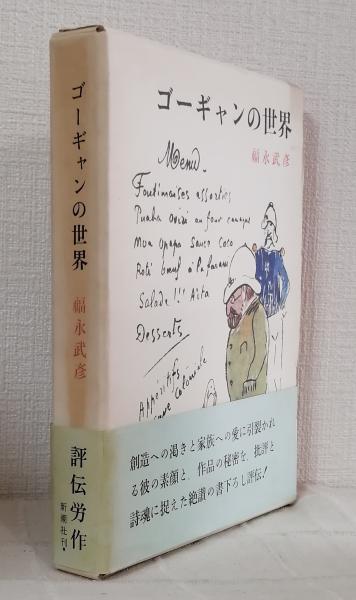 ゴーギャンの世界
福永武彦
評伝労作
新潮社刊
ゴーギャンの世界
福永武彦
Menu.
Salade!!! Aïta
Desserts
創造への渇きと家族への愛に引裂かれ
る彼の素顔と、作品の秘密を、批評と
詩魂に捉えた絶讃の書下ろし評伝！